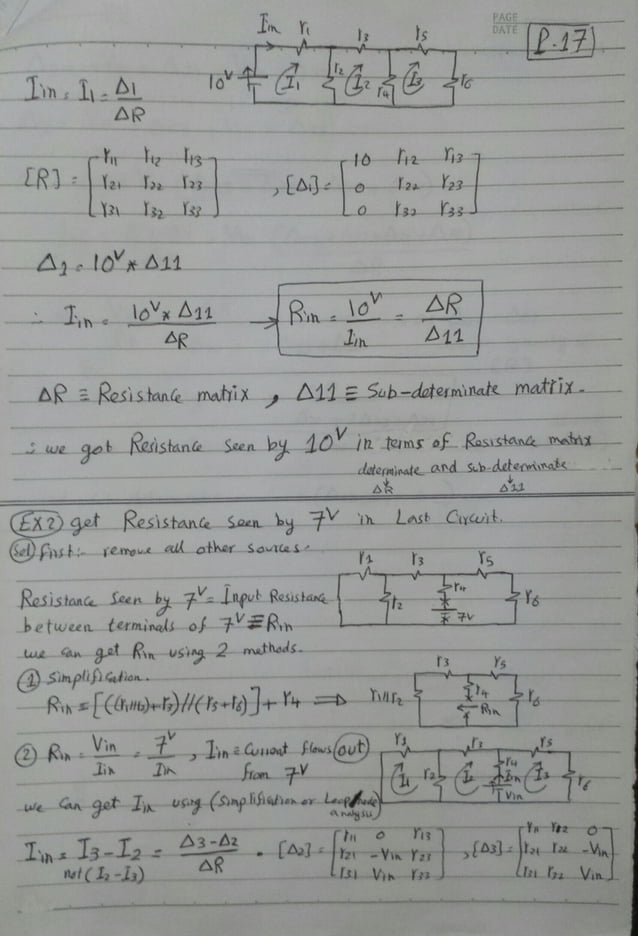 PAGE
DATE
P.17
Iin r1 r3 r5
10V I1 r2 I2 r4 I3 r6
Iin = I1 = Δ1 / ΔR
[R] = [ r11 r12 r13
r21 r22 r23
r31 r32 r33 ]
, [Δ1] = [ 10 r12 r13
0 r22 r23
0 r32 r33 ]
Δ1 = 10V * Δ11
∴ Iin = 10V * Δ11 / ΔR → Rin = 10V / Iin = ΔR / Δ11
ΔR ≡ Resistance matrix , Δ11 ≡ Sub-determinate matrix.
∴ we got Resistance seen by 10V in terms of Resistance matrix
determinate and sub-determinate
ΔR Δ11
EX2) get Resistance seen by 7V in Last Circuit.
Sol) first:- remove all other sources.
r1 r3 r5
r2 r4 7V r6
Resistance seen by 7V = Input Resistance
between terminals of 7V ≡ Rin
we can get Rin using 2 methods.
① Simplification.
Rin = [((r1//r2)+r3)//(r5+r6)] + r4 ⇒ r1//r2
r3 r5
r4 Rin r6
② Rin = Vin / Iin = 7V / Iin , Iin ≡ Current flows out
from 7V
r1 r3 r5
I1 r2 I2 r4 Iin Vin I3 r6
we can get Iin using (Simplification or Loop/node
analysis)
Iin = I3 - I2 = Δ3-Δ2 / ΔR . [Δ2] = [ r11 0 r13
r21 -Vin r23
r31 Vin r33 ]
, [Δ3] = [ r11 r12 0
r21 r22 -Vin
r31 r32 Vin ]
not (I2-I3)